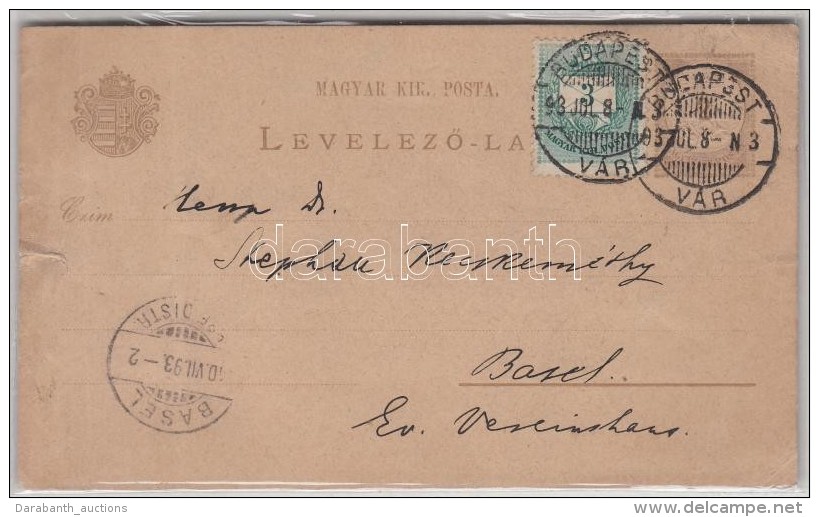 MAGYAR KIR. POSTA.
LEVELEZŐ-LA
3
BUDAPEST
93 JUL 8 - N 3
VÁR
BUDAPEST
93 JUL 8 - N 3
VÁR
Czim
Herrn Dr.
Stephan Kecskeméthy
Basel.
Ev. Vereinshaus.
BASEL
10.VII.93.-2
DISTR
darabanth
Darabanth_auctions
www.delcampe.net